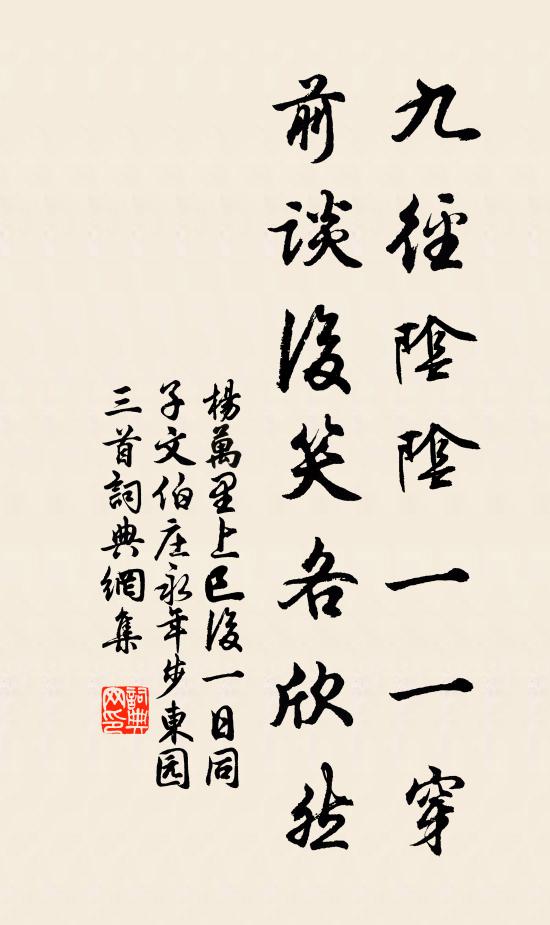 九徑陰陰一一穿
前談後笑各欣然
楊萬里上巳後一日同
子文伯庄永年步東园
三首詞典網集
詞典网印